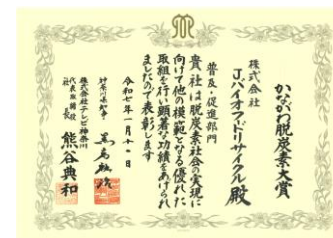 かながわ脱炭素大賞
株式会社
Jバイオフードリサイクル殿
普及・促進部門
貴社は脱炭素社会の実現に
向けて他の模範となる優れた
取組を行い顕著な功績をあげられ
ましたので表彰します
令和七年一月十日
神奈川県知事 黒岩祐治
株式会社テレビ神奈川
代表取締役社長 熊谷典和